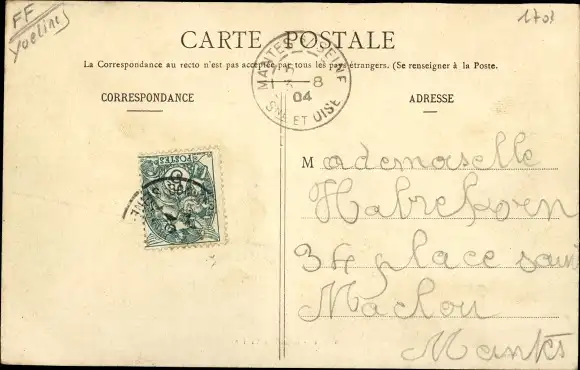 FF
Yvelines
1701
CARTE POSTALE
La Correspondance au recto n'est pas acceptée par tous les pays étrangers. (Se renseigner à la Poste.
MANTES S. SEINE
8
04
S. ET OISE
CORRESPONDANCE
ADRESSE
POSTES
Mademoiselle
Habrekorn
34 place saint
Maclou
Mantes